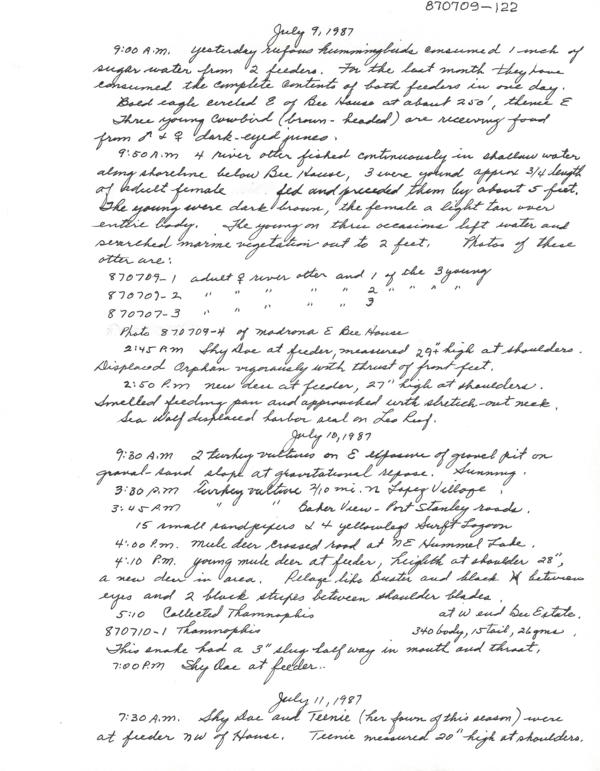 870709-122
July 9, 1987
9:00 A.M. Yesterday rufous hummingbirds consumed 1 inch of
sugar water from 2 feeders. For the last month they have
consumed the complete contents of both feeders in one day.
Bald eagle circled E of Bee House at about 250', thence E
Three young Cowbird (brown-headed) are receiving food
from ♂ & ♀ dark-eyed juncos.
9:50 A.M. 4 river otter fished continuously in shallow water
along shoreline below Bee House, 3 were young approx 3/4 length
of adult female fed and preceded them by about 5 feet.
The young were dark brown, the female a light tan over
entire body. The young on three occasions left water and
searched marine vegetation out to 2 feet. Photos of these
otter are:
870709-1 adult ♀ river otter and 1 of the 3 young
870709-2 " " " " " 2 " " " "
870707-3 " " " " " 3
Photo 870709-4 of madrona E Bee House
2:45 P.M Shy Doe at feeder, measured 29+ high at shoulders.
Displaced Orphan vigorously with thrust of front feet.
2:50 P.M. new deer at feeder, 27" high at shoulders.
Smelled feeding pan and approached with stretch-out neck.
Sea Wolf displaced harbor seal on Leo Reef.
July 10, 1987
9:30 A.M 2 turkey vultures on E exposure of gravel pit on
graval-sand slope at gravitational repose. Sunning.
3:30 P.M Turkey vulture 2/10 mi. N Lopez Village.
3:45 AM " " Baker View - Port Stanley roads.
15 small sandpipers & 4 yellowlegs Surft Lagoon
4:00 P.M. Mule deer crossed road at NE Hummel Lake.
4:10 P.M. young mule deer at feeder, heighth at shoulder 28",
a new deer in area. Pelage like Buster and black between
eyes and 2 black stripes between shoulder blades.
5:10 Collected Thamnophis at W end Bee Estate.
870710-1 Thamnophis 340 body, 15 tail, 26 gms.
This snake had a 3" slug half way in mouth and throat.
7:00 P.M Shy Doe at feeder..
July 11, 1987
7:30 A.M. Shy Doe and Teenie (her fawn of this season) were
at feeder NW of House. Teenie measured 20" high at shoulders.